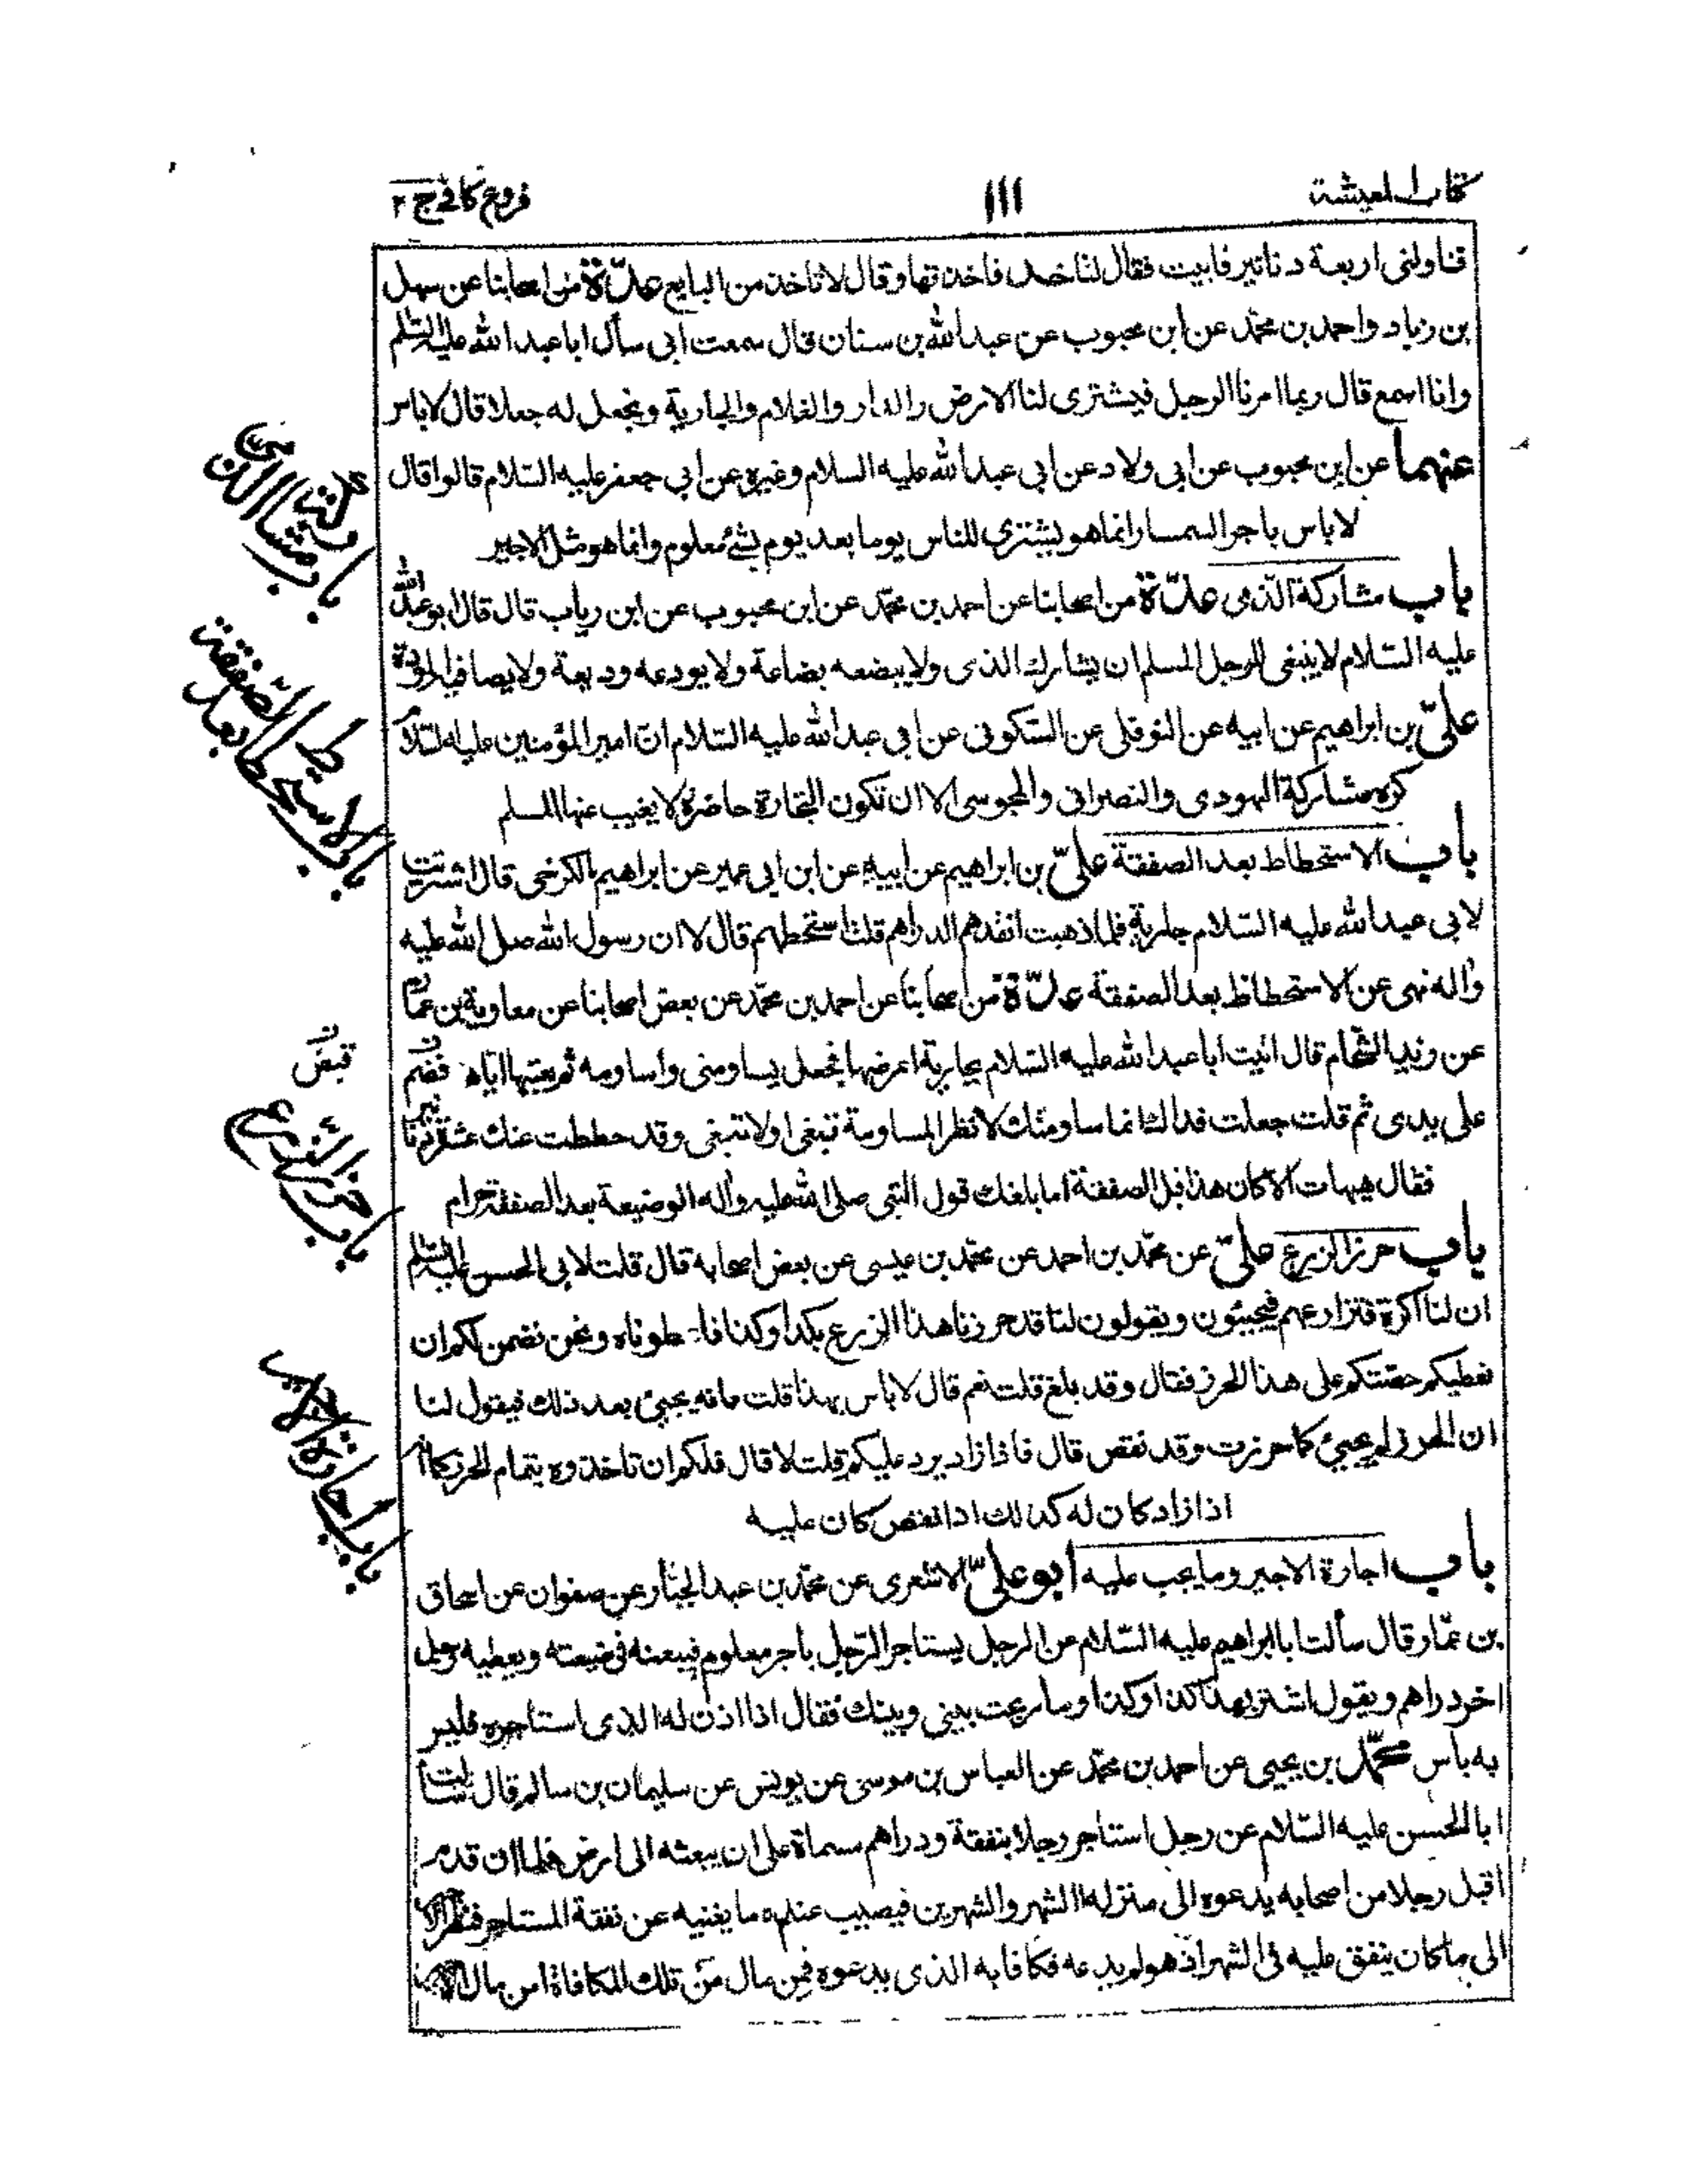 كتاب المعيشة
١١١
فروع كافي ج ٢
فناولنى اربعة دنانير فابيت فقال لتاخذ فاخذتها وقال لا تاخذ من البايع عدّة من اصحابنا عن سهل
بن زياد واحمد بن محمّد عن ابن محبوب عن عبد الله بن سنان قال سمعت ابى سأل ابا عبد الله عليه السّلم
وانا اسمع قال ربما امرنا الرجل فيشترى لنا الارض والدار والغلام والجارية ونجعل له جعلا قال لا باس
عنهما عن ابن محبوب عن ابى ولاد عن ابى عبد الله عليه السلام وغيره عن ابى جعفر عليه السّلام قالوا قال
لا باس باجر السمسار انما هو يشترى للناس يوما بعد يوم بشئ معلوم وانما هو مثل الاجير
باب مشاركة الذّمى عدّة من اصحابنا عن احمد بن محمّد عن ابن محبوب عن ابن رياب قال قال ابو عبد الله
عليه السّلام لا ينبغى للرجل المسلم ان يشارك الذى ولا يبضعه بضاعة ولا يودعه وديعة ولا يصافيه المودّة
علىّ بن ابراهيم عن ابيه عن النوفلى عن السّكونى عن ابى عبد الله عليه السّلام انّ امير المؤمنين عليه السّلام
كره مشاركة اليهودى والنصرانى والمجوسى الا ان تكون التجارة حاضرة لا يغيب عنها المسلم
باب الاستحطاط بعد الصفقة علىّ بن ابراهيم عن ابيه عن ابن ابى عمير عن ابراهيم الكرخى قال اشتريت
لابى عبد الله عليه السّلام جارية فلما ذهبت انقدهم الدراهم قلت استحطهم قال لا ان رسول الله صلى الله عليه
واله نهى عن الاستحطاط بعد الصفقة عدّة من اصحابنا عن احمد بن محمّد عن بعض اصحابنا عن معاوية بن عمّار
عن زيد الشحّام قال اتيت ابا عبد الله عليه السّلام بجارية اعرضها فجعل يساومنى واساومه ثم بعتها اياه فضم
على يدى ثم قلت جعلت فداك انما ساومتك لانظر المساومة تنبغى او لا تنبغى وقد حططت عنك عشرة دنانير
فقال هيهات الا كان هذا قبل الصفقة اما بلغك قول النبى صلى الله عليه واله الوضيعة بعد الصفقة حرام
باب حرز الزرع علىّ عن محمّد بن احمد عن محمّد بن عيسى عن بعض اصحابه قال قلت لابى الحسن عليه السّلم
ان لنا اكرة فنزارعهم فيجيئون ويقولون لنا قد حرزنا هذا الزرع بكذا وكذا فاعطوناه ونحن نضمن لكم ان
نعطيكم حصّتكم على هذا الحرز فقال وقد بلغ قلت نعم قال لا باس بهذا قلت فانه يجيئ بعد ذلك فيقول لنا
ان الحرز لم يجيئ كما حرزت وقد نقص قال فاذا زاد يرد عليكم قلت لا قال فلكم ان تاخذوه بتمام الحرز كما انه
اذا زاد كان له كذلك اذا نقص كان عليه
باب اجارة الاجير وما يجب عليه ابو علىّ الاشعرى عن محمّد بن عبد الجبّار عن صفوان عن اسحاق
بن عمّار قال سألت ابا ابراهيم عليه السّلام عن الرجل يستاجر الرّجل باجر معلوم فيبعثه فى ضيعته ويعطيه رجل
اخر دراهم ويقول اشتر بهذا كذا وكذا وما ربحت بينى وبينك فقال اذا اذن له الذى استاجره فليس
به باس محمّد بن يحيى عن احمد بن محمّد عن العباس بن موسى عن يونس عن سليمان بن سالم قال سالت
ابا الحسن عليه السّلام عن رجل استاجر رجلا بنفقة ودراهم مسماة على ان يبعثه الى ارض فلما ان قدم
اقبل رجلا من اصحابه يدعوه الى منزله الشهر والشهرين فيصيب عنده ما يغنيه عن نفقة المستاجر فنظر الاجير
الى ما كان ينفق عليه فى الشهر اذ هو لم يدعه فكافا به الذى يدعوه فمن مال من تلك المكافاة امن مال الاجير
باب مشاركة الذمى
باب الاستحطاط بعد الصّفقة
قبض
باب حرز الزرع
باب اجارة الاجير